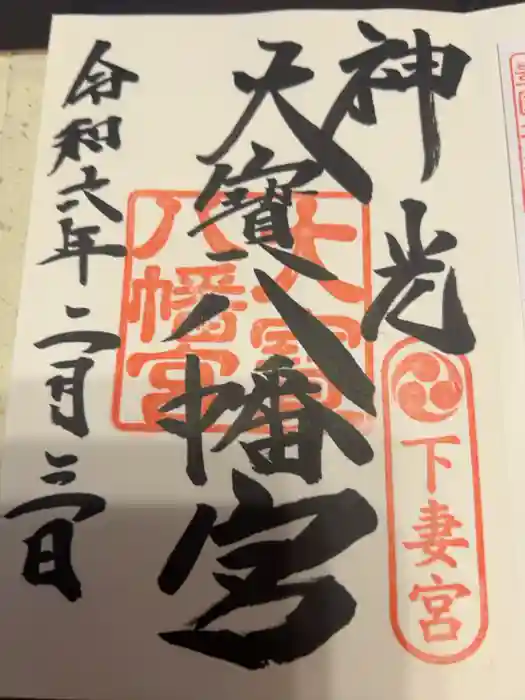 神光
下妻宮
大寳八幡宮
大寳
八幡宮
令和六年二月三日